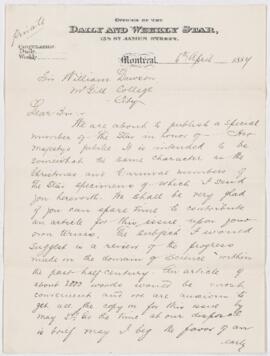 private
OFFICES OF THE
DAILY AND WEEKLY STAR,
ST JAMES STREET,
CIRCULATION
Daily,
Weekly,
Montreal, 6th April 188
Sir William Dawson
McGill College
City
Dear Sir
We are about to publish a special
number of The Star in honor of Her
majesty's jubilee It is intended to be
somewhat the same character as the
Christmas and Carnival numbers of
The Star specimens of which I send
you herewith. We shall be very glad
if you can spare time to contribute
an article for this issue upon your
own terms. The subject I would
suggest is a review of the progress
made in the domain of Science within
the past half century. An article of
about 2000 words would be most
convenient and we are anxious to
get all the copy in for this issue by
May as the time at our disposal
is brief may I beg the favor of an
early